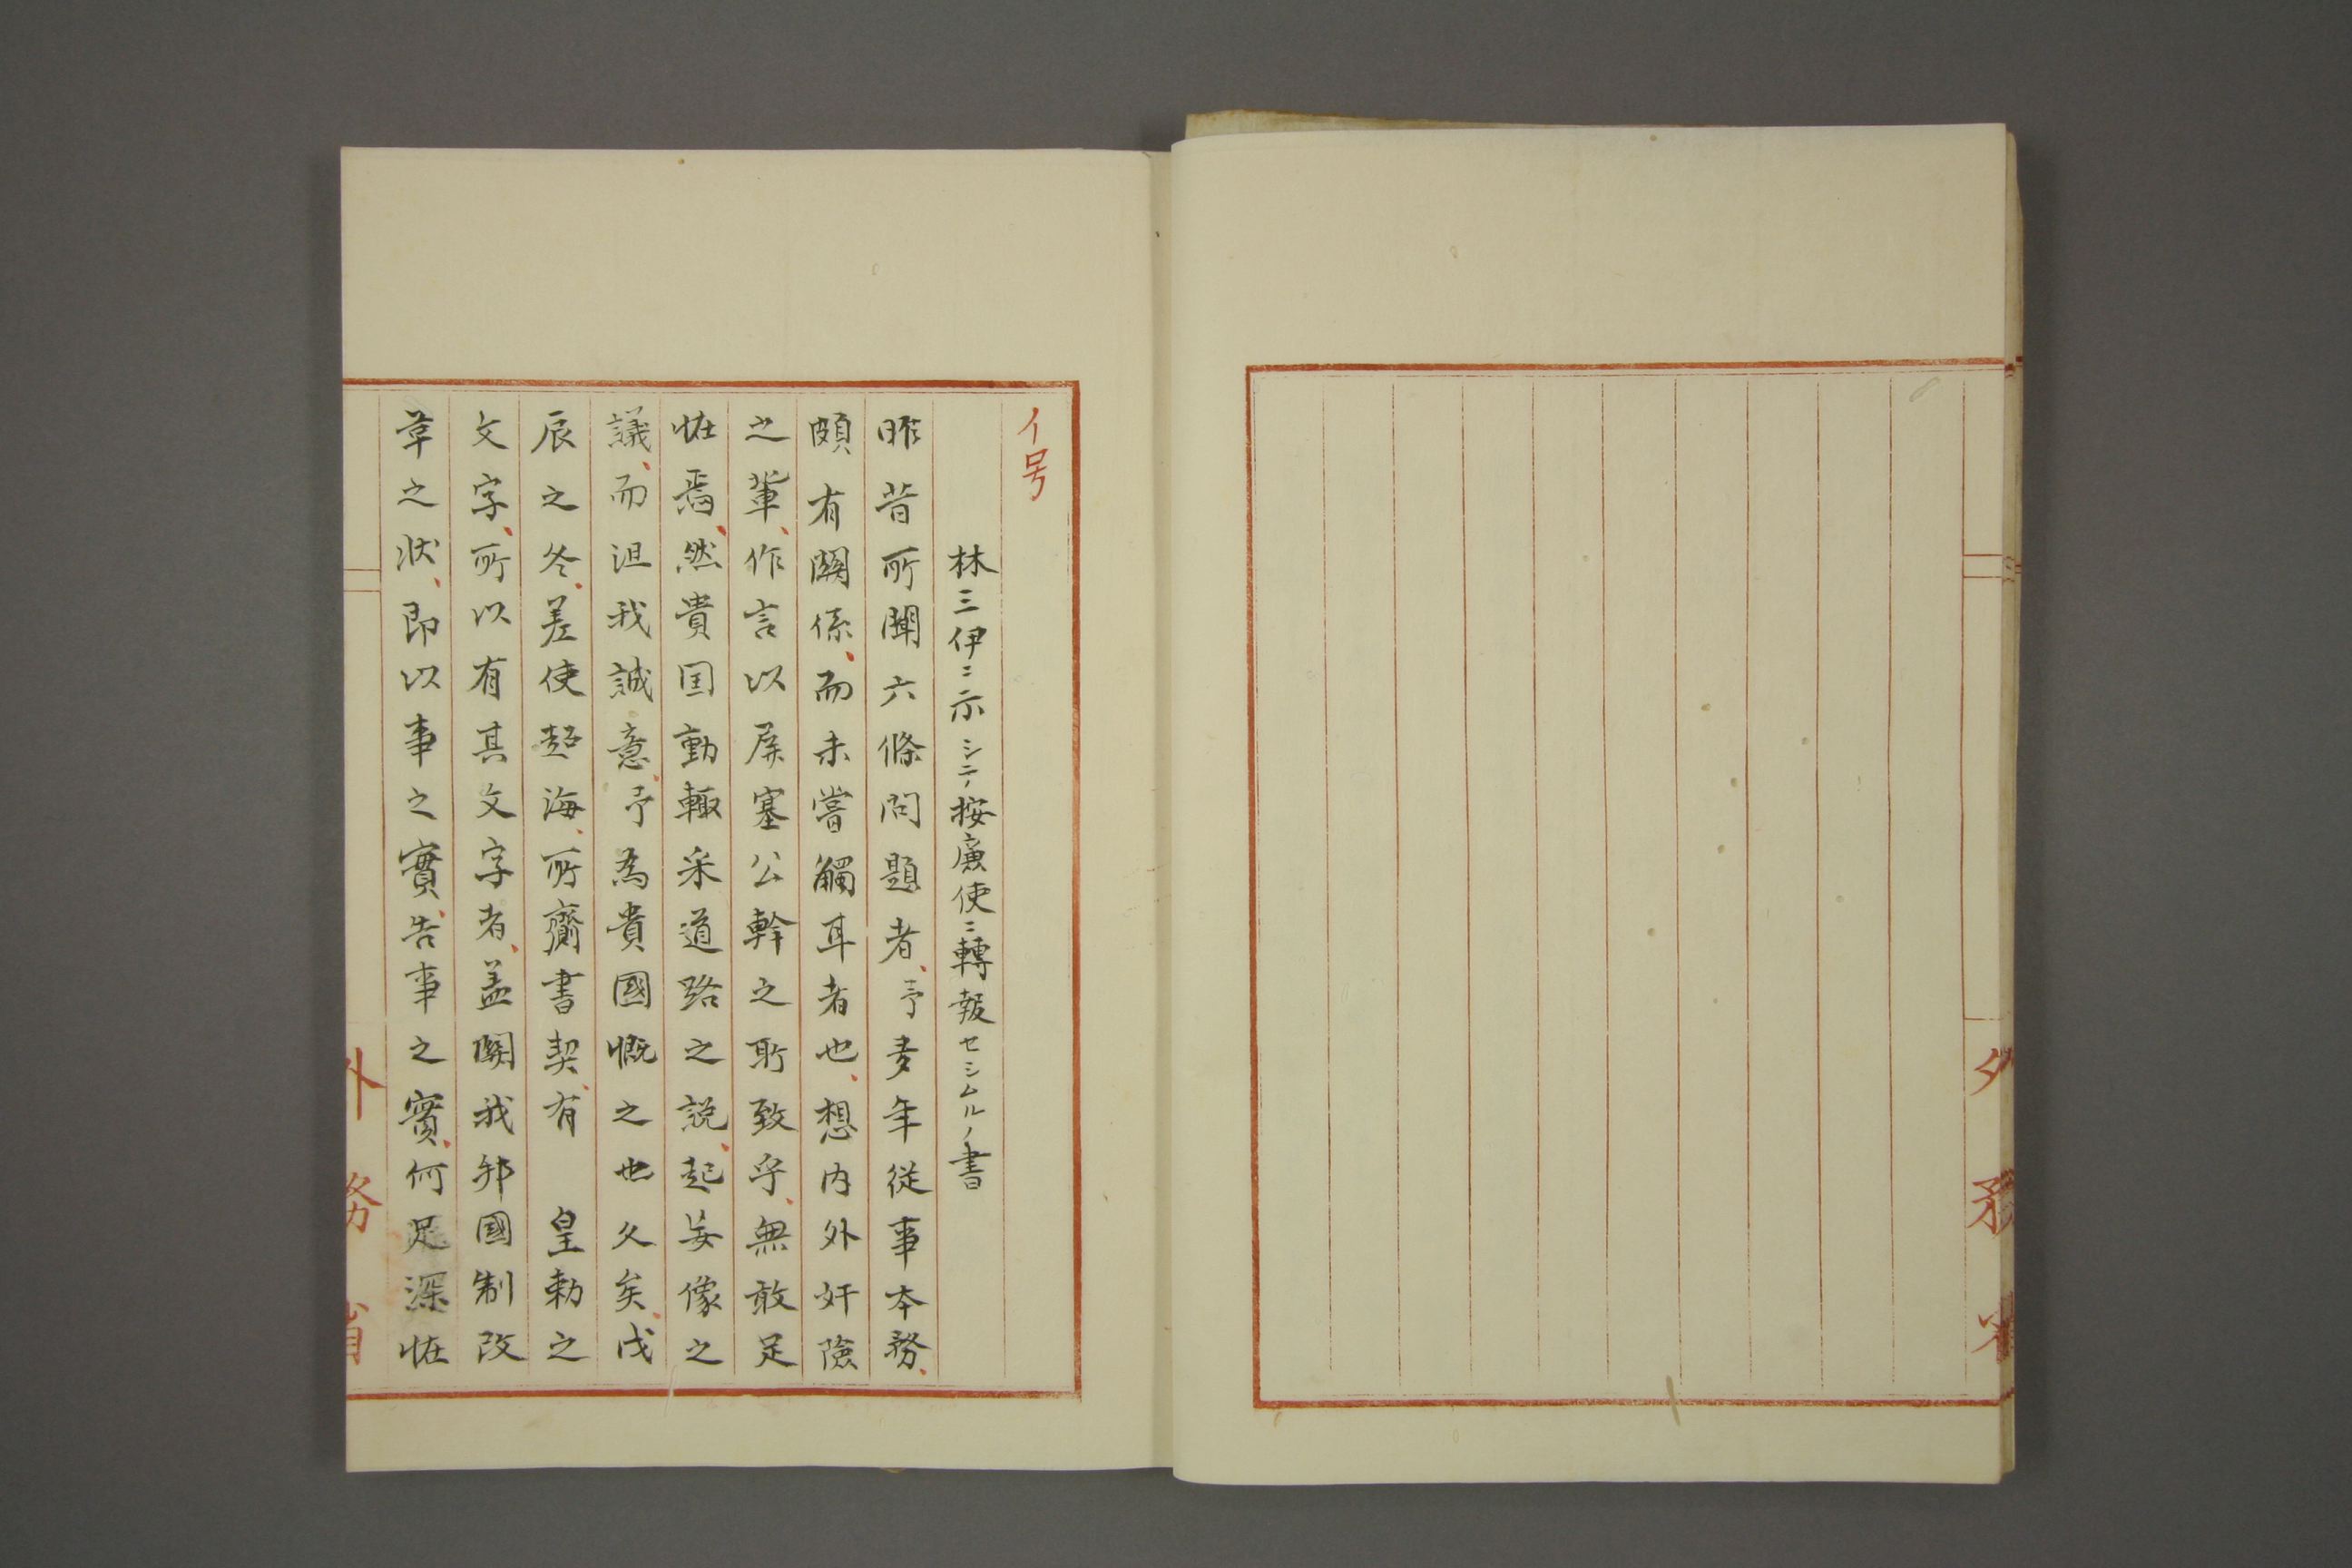 イ号
林三伊ニ示シテ按廉使ニ轉報セシムルノ書
昨昔所聞六條問題者、予多年從事本務、
頗有關係、而未嘗觸耳者也、想内外奸險
之輩、作言以屏塞公幹之所致乎、無敢足
怪焉、然貴国動輙采道路之説、起妄像之
議、而沮我誠意、予為貴國慨之也久矣、戊
辰之冬、差使超海、所齎書契、有　皇勅之
文字、所以有其文字者、盖關我邦國制改
革之状、即以事之實、告事之實、何足深怪
外務省
外務省